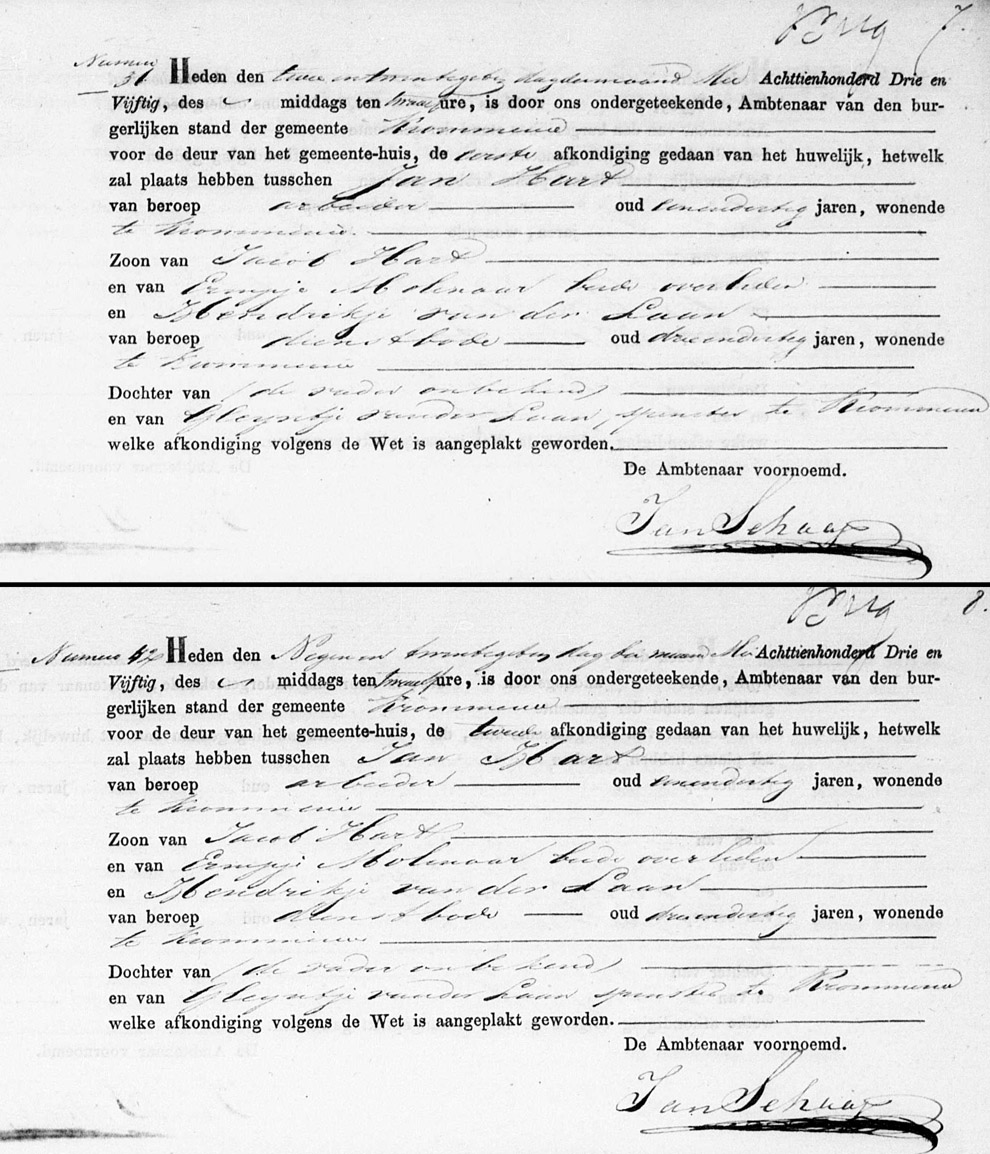 7.
Numero
31 Heden den twee en twintigsten dag der maand Mei Achttienhonderd Drie en
Vijftig, des middags ten twaalf ure, is door ons ondergeteekende, Ambtenaar van den bur-
gerlijken stand der gemeente Krommenie
voor de deur van het gemeente-huis, de eerste afkondiging gedaan van het huwelijk, hetwelk
zal plaats hebben tusschen Jan Hart
van beroep arbeider oud eenendertig jaren, wonende
te Krommenie
Zoon van Jacob Hart
en van Molenaar beide overleden
en Hendrikje van der Laan
van beroep dienstbode oud drieendertig jaren, wonende
te Krommenie
Dochter van (de vader onbekend)
en van van der Laan, spinster te Krommenie
welke afkondiging volgens de Wet is aangeplakt geworden.
De Ambtenaar voornoemd.
Jan Schaap
8.
Numero Heden den Negen en twintigsten dag der maand Mei Achttienhonderd Drie en
Vijftig, des middags ten twaalf ure, is door ons ondergeteekende, Ambtenaar van den bur-
gerlijken stand der gemeente Krommenie
voor de deur van het gemeente-huis, de tweede afkondiging gedaan van het huwelijk, hetwelk
zal plaats hebben tusschen Jan Hart
van beroep arbeider oud eenendertig jaren, wonende
te Krommenie
Zoon van Jacob Hart
en van Molenaar beide overleden
en Hendrikje van der Laan
van beroep dienstbode oud drieendertig jaren, wonende
te Krommenie
Dochter van (de vader onbekend)
en van van der Laan spinster te Krommenie
welke afkondiging volgens de Wet is aangeplakt geworden.
De Ambtenaar voornoemd.
Jan Schaap